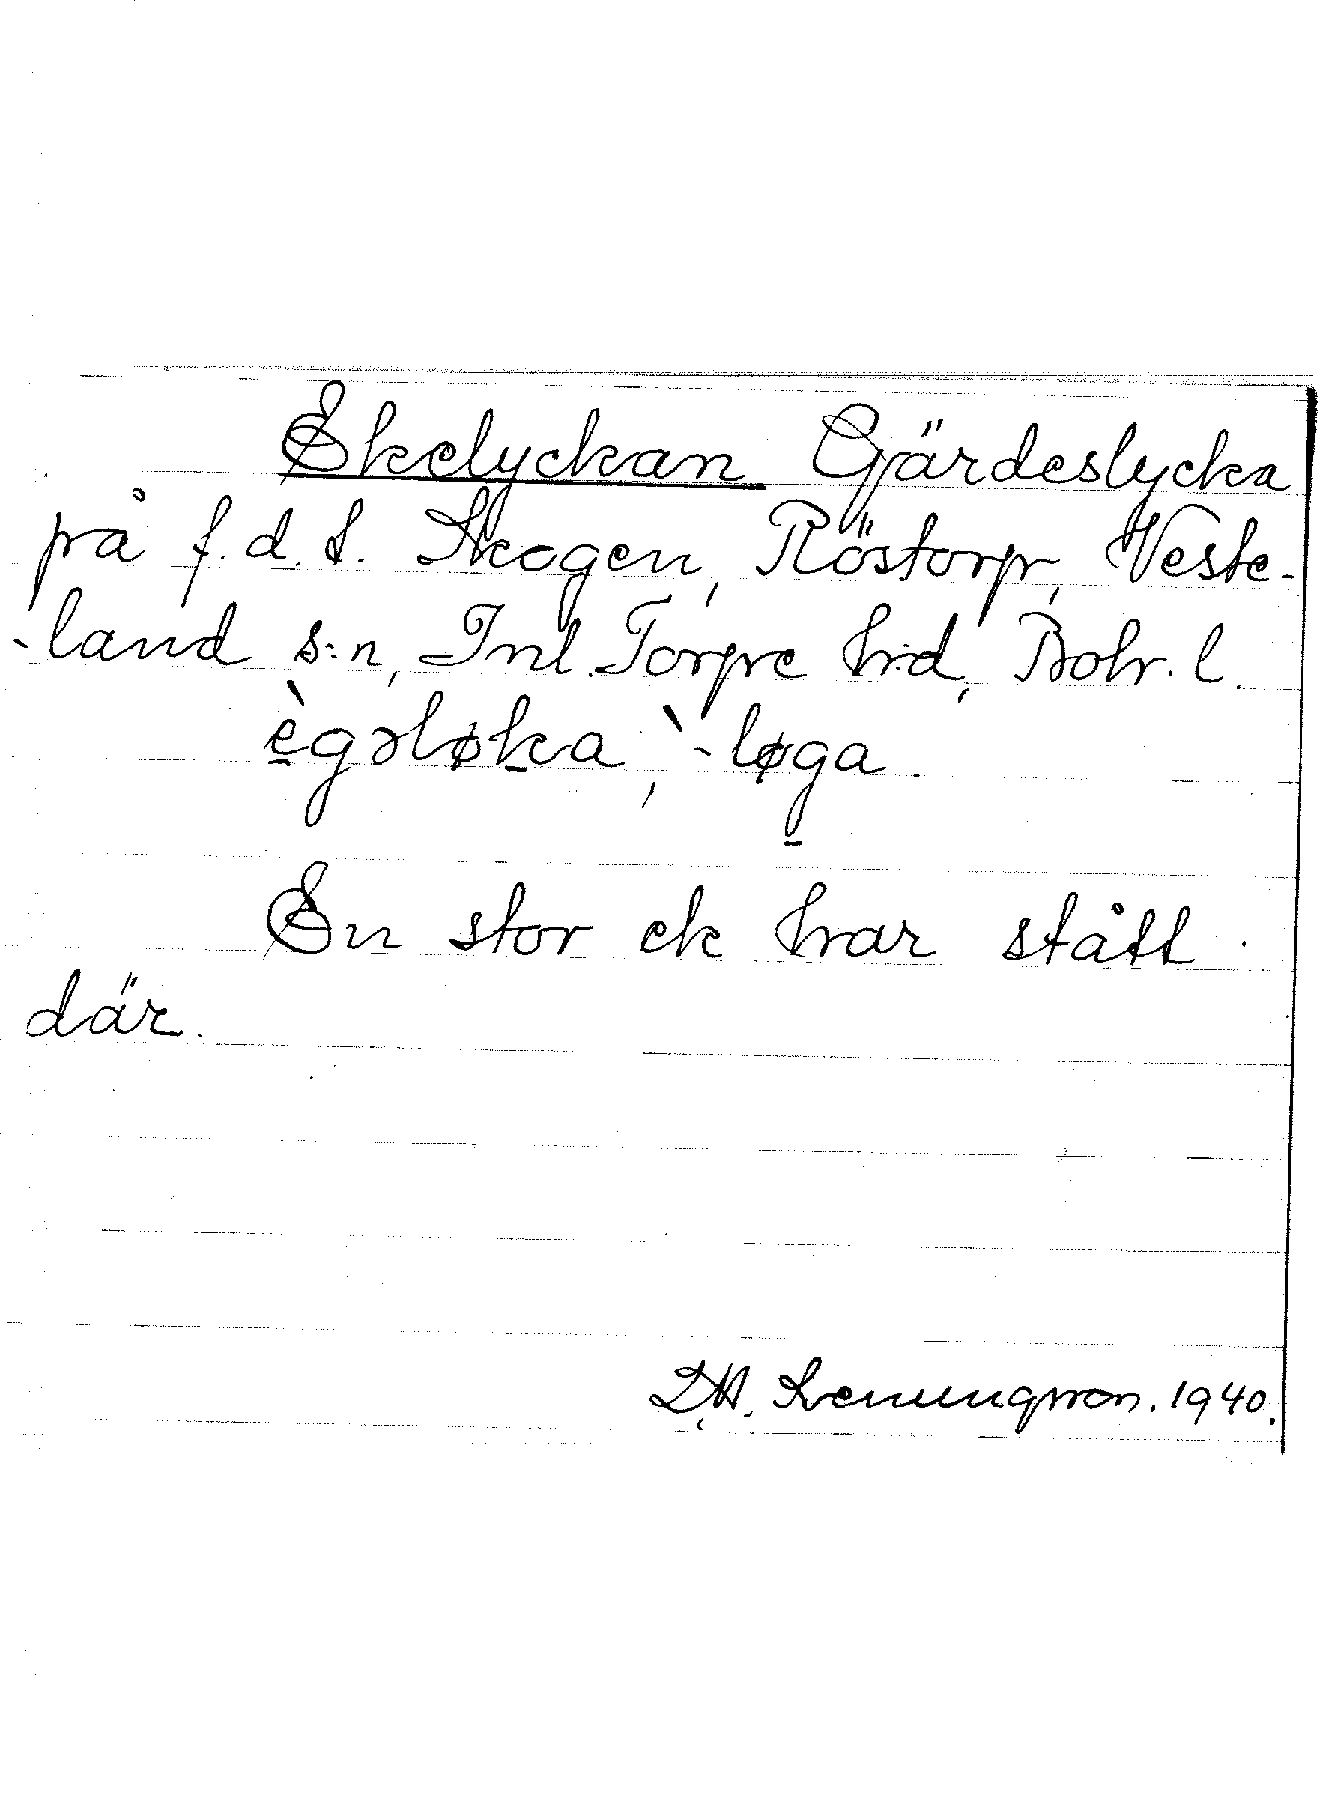 Ekelyckan Gjärdeslycka
på f.d.t. Skogen, Röstorp, Veste-
-land s:n, Inl. Torpe h:d, Boh. l.
ègəløka, `-løga.
En stor ek har stått
där.
1940.